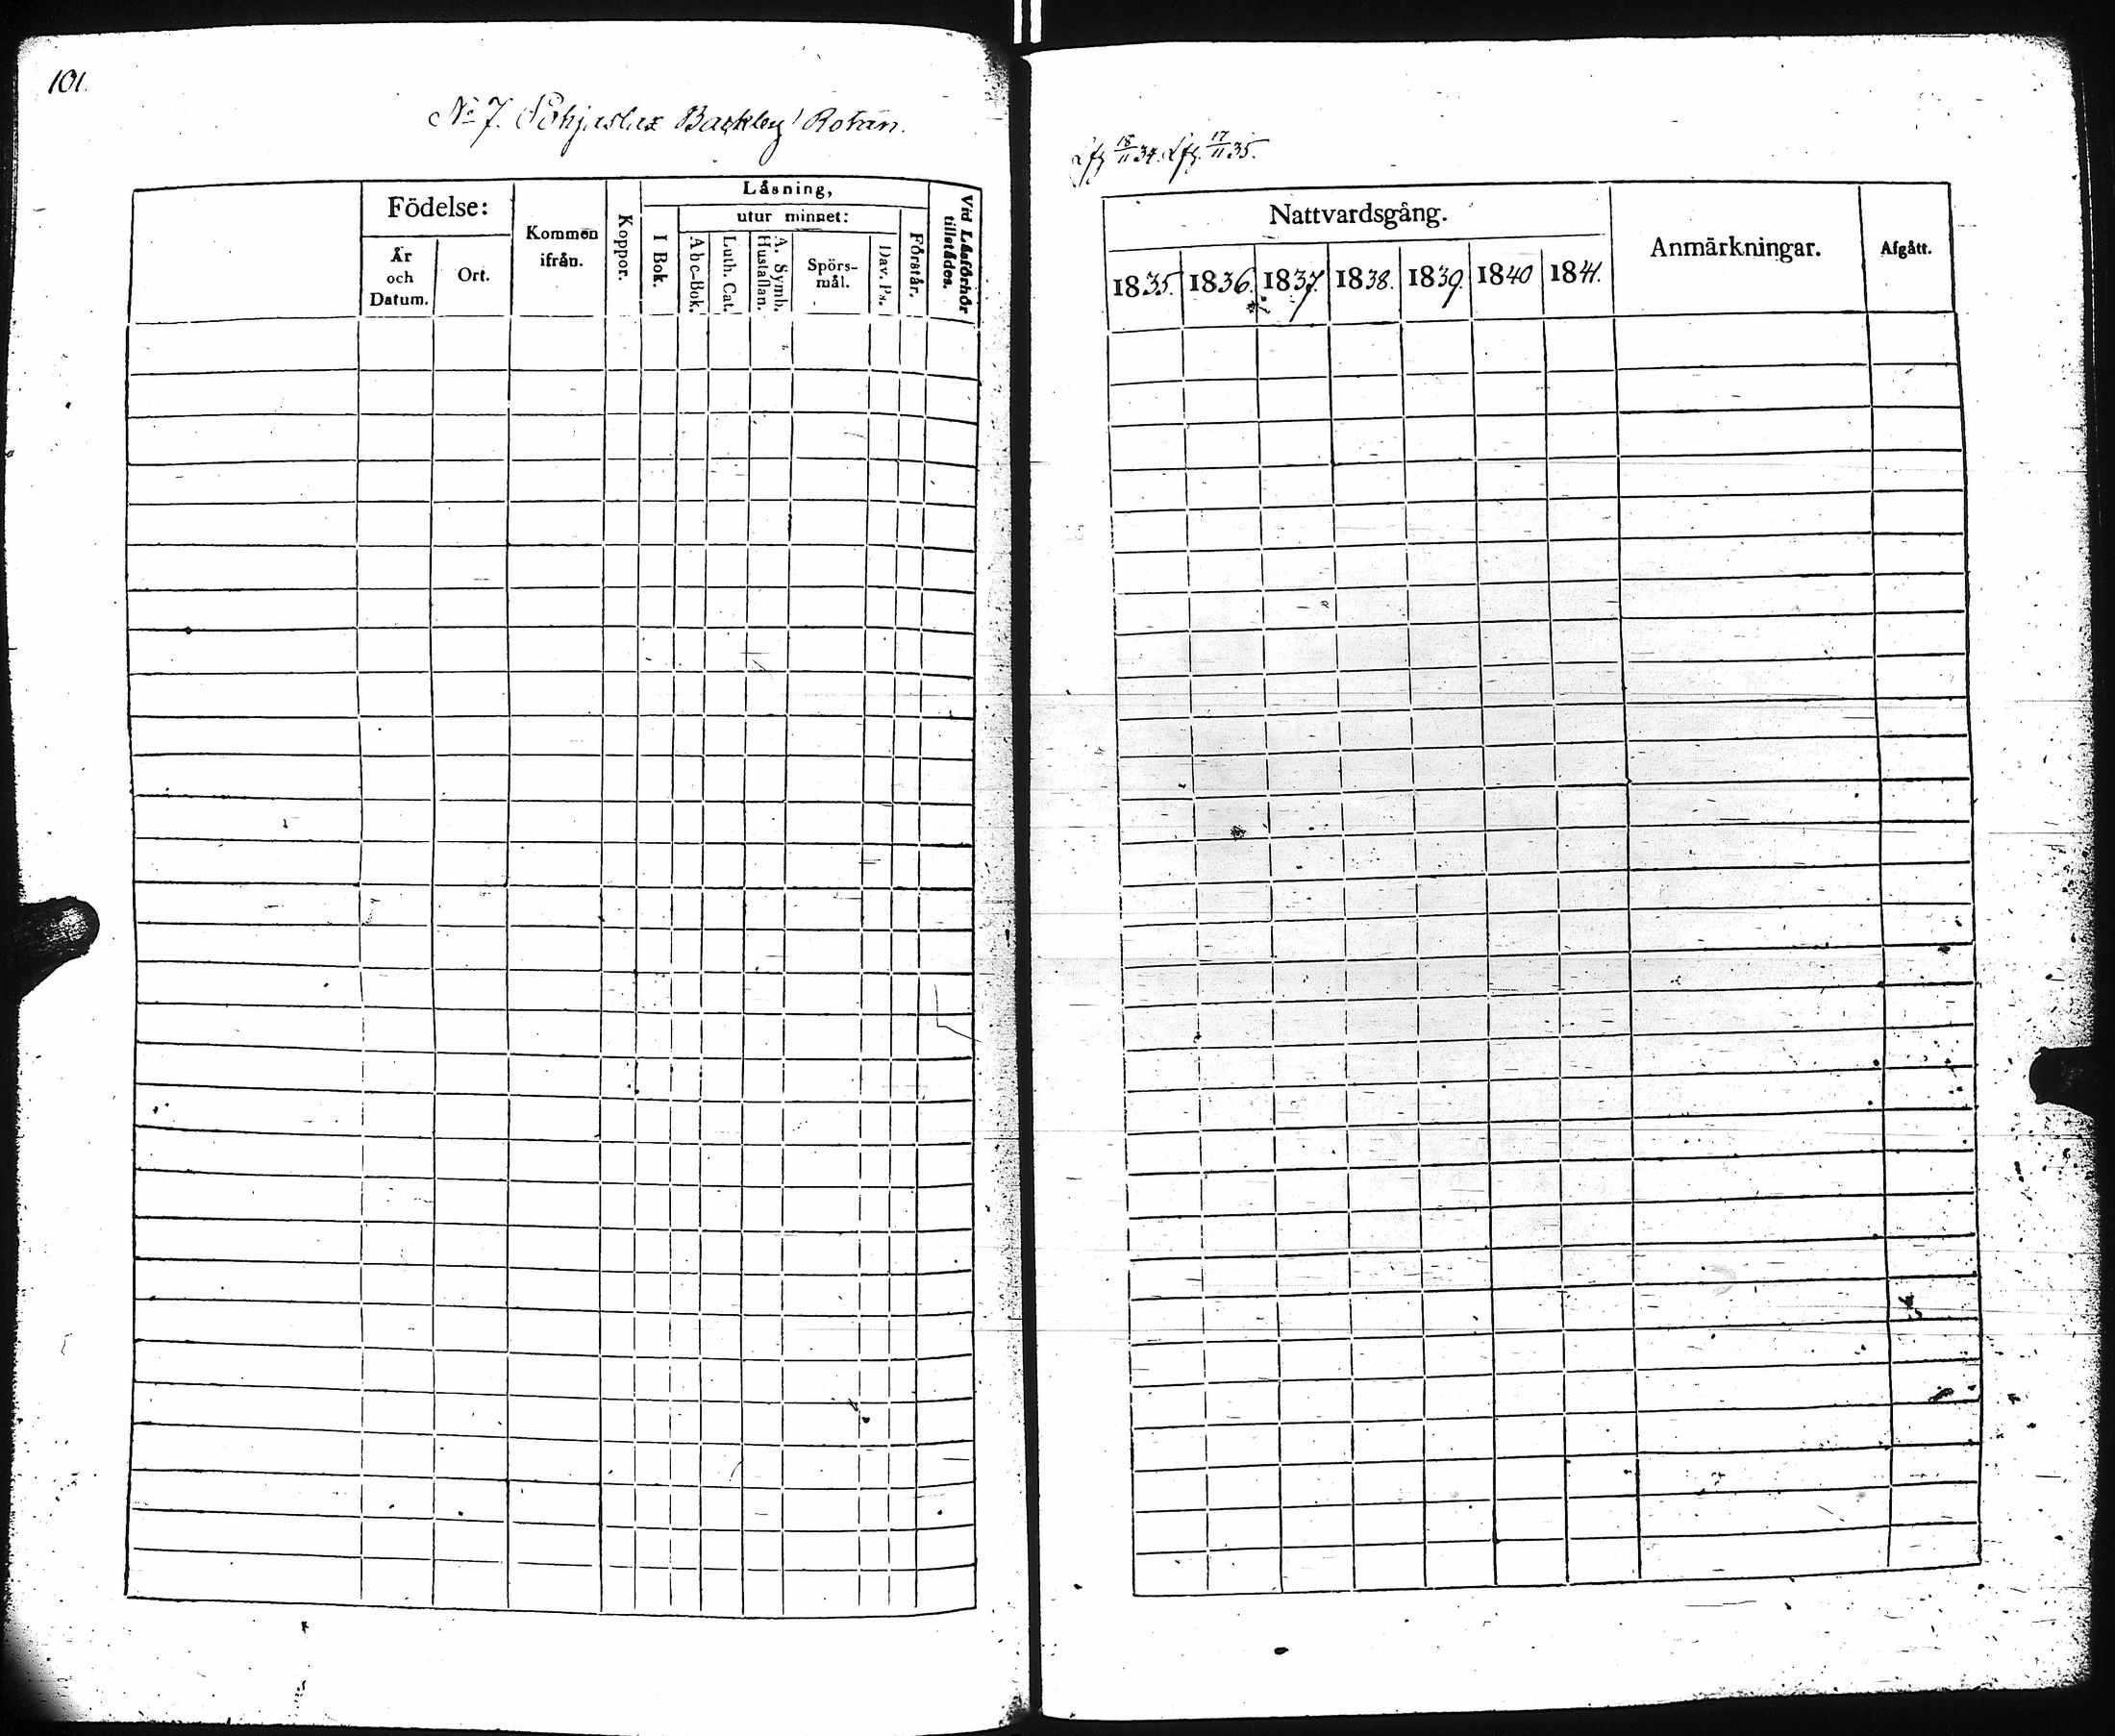 101.
No 7. Pohjaslax Backby Rotan.
Födelse:
År och Datum.
Ort.
Kommen ifrån.
Koppor.
Låsning,
I Bok.
utur minnet:
Abc-Bok.
Luth. Cat.
A. Symb. Hustaflan.
Spörs-
mål.
Dav. Ps.
Förstår.
Vid Låsförhör tillstådes.
18/11 34. 17/11 35.
Nattvardsgång.
1835. 1836. 1837. 1838. 1839. 1840 1841.
Anmärkningar.
Afgått.